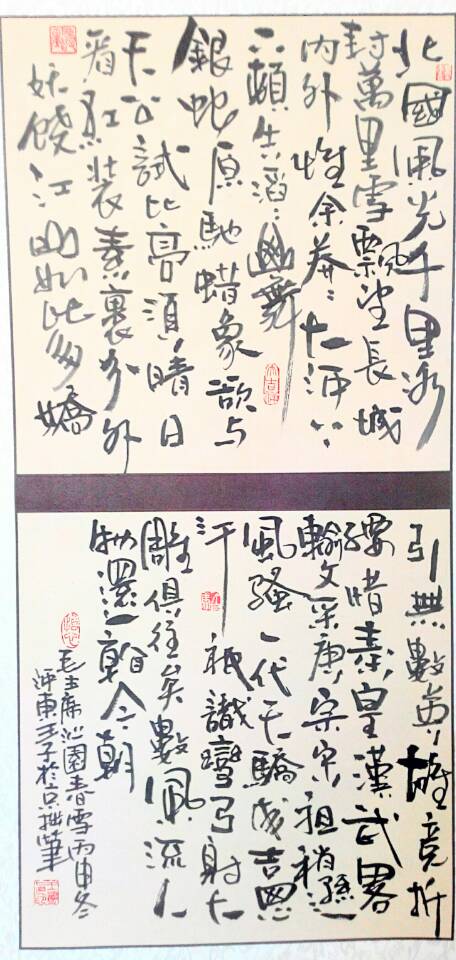 北國風光千里冰
封萬里雪飄望長城
内外惟余莽〻大河上
下頓失滔〻山舞
銀蛇原馳蜡象欲与
天公試比高須晴日
看红装素裹分外
妖娆江山如此多嬌
引無數英雄竞折
腰惜秦皇漢武畧
輸文采唐宗宋祖稍遜
風骚一代天驕成吉思
汗祇識彎弓射大
雕俱往矣數風流人
物還看今朝
毛主席沁園春雪丙申冬
河東王子於京拙筆